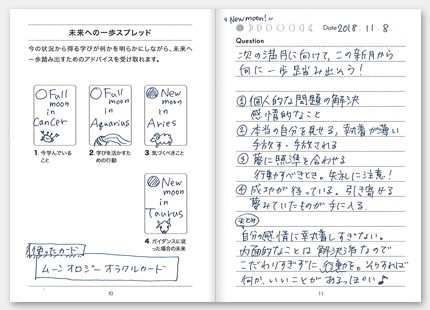 未来への一歩スプレッド
今の状況から得る学びが何かを明らかにしながら、未来へ
一歩踏み出すためのアドバイスを受け取れます。
Full
moon
in
Cancer
Full
moon
in
Aquarius
New
moon
in
Aries
1 今学んでいる
こと
2 学びを活かすた
めの行動
3 気づくべきこと
New
moon
in
Taurus
4 ガイダンスに従
った場合の未来
使ったカード
ムーンオロジー オラクルカード
10
"New moon!"
Date 2018. 11. 8
Question
次の満月に向けて、この新月から
何に一歩踏み出そう!
① 個人的な問題の解決
感情的なこと
② 本当の自分を見せる。執着が薄い
手放す・手放される
③ 夢に照準を合わせる
行動すべきとき。矢礼に注意!
④ 成功が待っている。引き寄せる
夢みていたものが手に入る。
まとめ
自分の感情に執着しすぎない。
内面的なことは解決済なので
こだわりすぎずに行動を。そうすれば
何か、いいことがあるっぽい♪
11